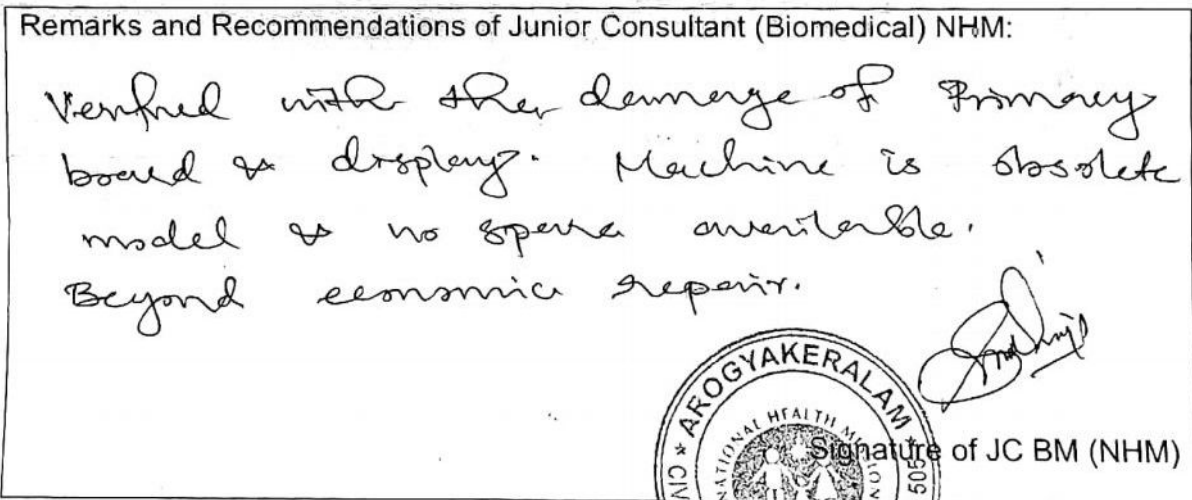 Remarks and Recommendations of Junior Consultant (Biomedical) NHM:
Verified with the damage of Primary
board & display. Machine is obsolete
model & no spare available.
Beyond economic repair.
* AROGYAKERALAM *
NATIONAL HEALTH MISSION
CIV
505
Signature of JC BM (NHM)